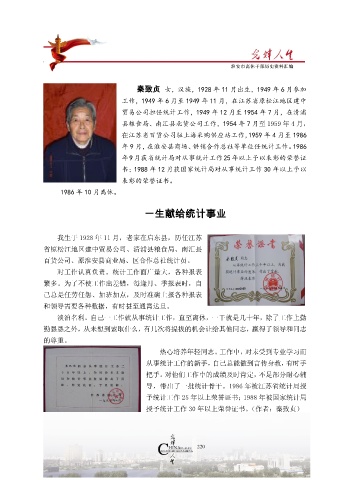 光辉人生
淮安市离休干部历史资料汇编
秦致贞 女，汉族，1928年11月出生，1949年6月参加
工作，1949年6月至1949年11月，在江苏省原松江地区建中
贸易公司担任统计工作，1949年12月至1954年7月，在清浦
县粮食局、南汇县花纱公司工作，1954年7月至1959年4月，
在江苏省百货公司驻上海采购供应站工作，1959年4月至1986
年9月，在淮安县商场、供销合作总社等单位任统计工作。1986
年9月获省统计局对从事统计工作25年以上予以表彰的荣誉证
书；1988年12月获国家统计局对从事统计工作30年以上予以
表彰的荣誉证书。
1986年10月离休。
一生献给统计事业
我生于1928年11月，老家在启东县，历任江苏
省原松江地区建中贸易公司、清浦县粮食局、南汇县
百货公司、原淮安县商业局、区合作总社统计员。
对工作认真负责。统计工作面广量大，各种报表
繁多，为了不使工作出差错，每逢月、季报表时，自
己总是任劳任怨、加班加点，及时准确上报各种报表
和领导需要各种数据，有时甚至通宵达旦。
淡泊名利。自己一工作就从事统计工作，直至离休，一干就是几十年。除了工作上勤
勤恳恳之外，从未想到索取什么，有几次将提拔的机会让给其他同志，赢得了领导和同志
的尊重。
热心培养年轻同志。工作中，对未受到专业学习而
从事统计工作的新手，自己总能做到言传身教，有时手
把手，对他们工作中的成绩及时肯定，不足部分耐心辅
导，带出了一批统计骨干。1986年被江苏省统计局授
予统计工作25年以上荣誉证书；1988年被国家统计局
授予统计工作30年以上荣誉证书。（作者：秦致贞）
荣誉证书
光辉
CHINA
人生
220